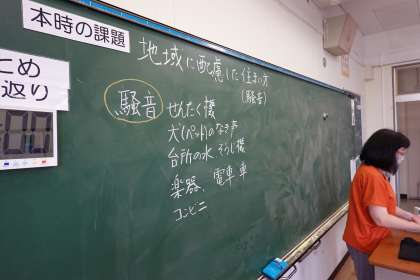 本時の課題
地域に配慮した住まい方
(騒音)
とめ
返り
騒音
せんたく機
犬(ペット)のなき声
台所の水 そうじ機
楽器、電車 車
コンビニ